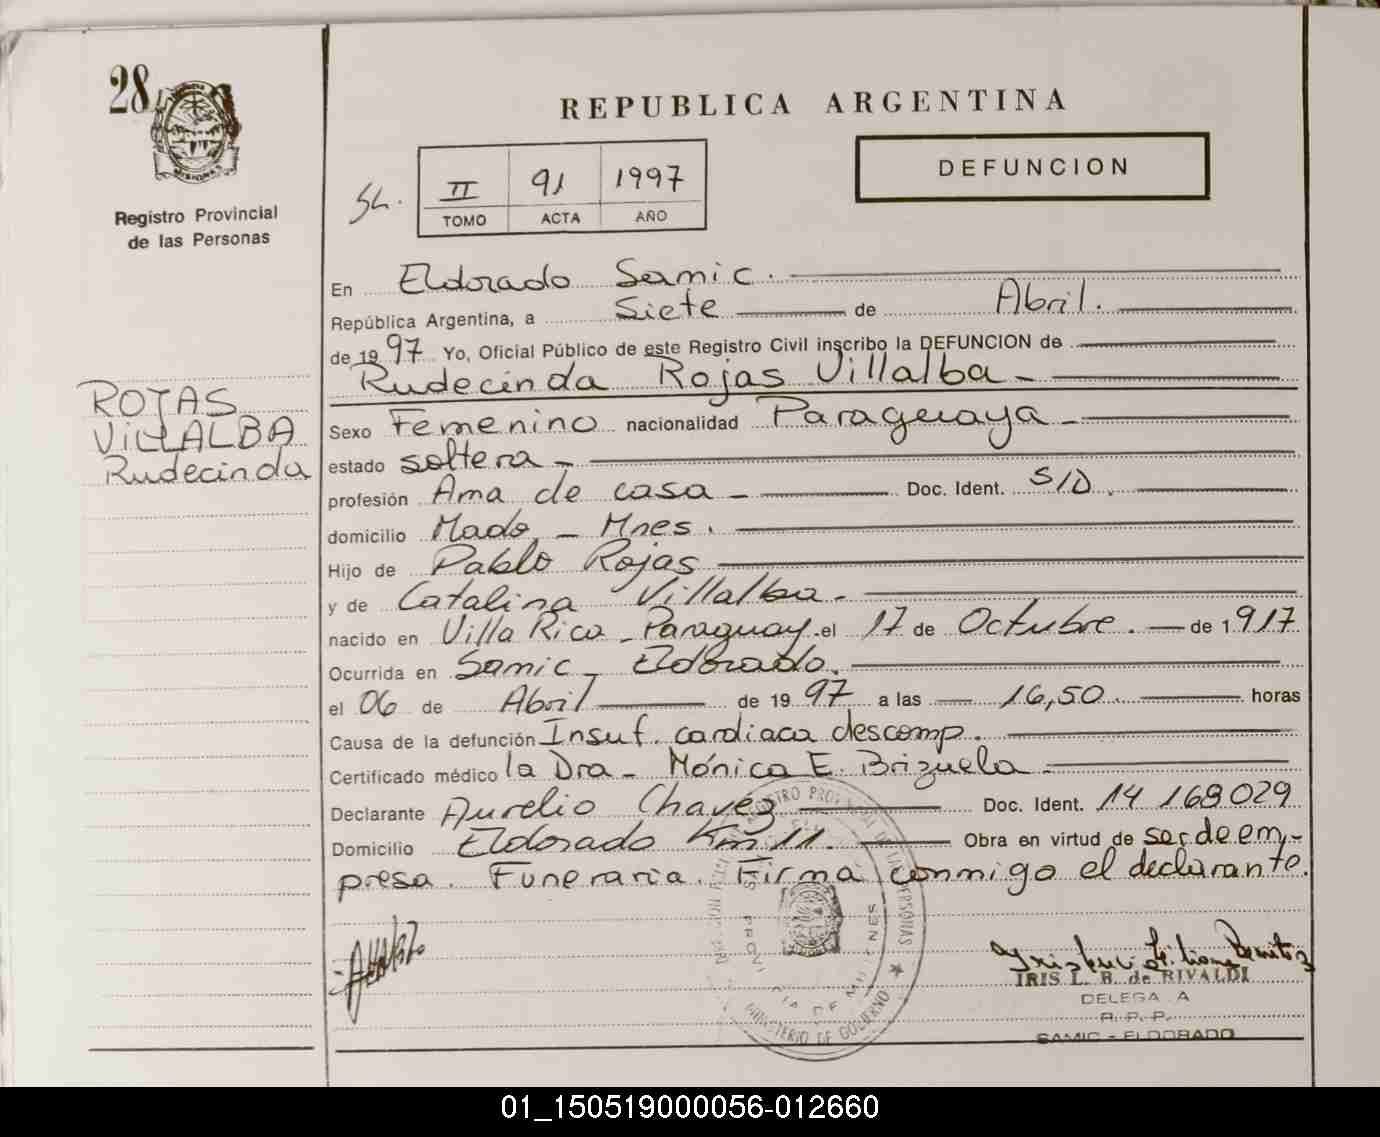 28
Registro Provincial
de las Personas
ROJAS
VILLALBA
Rudecinda
REPUBLICA ARGENTINA
II 91 1997
TOMO ACTA AÑO
DEFUNCION
En Eldorado Samic.
República Argentina, a Siete de Abril.
de 1997 Yo, Oficial Público de este Registro Civil inscribo la DEFUNCION de
Rudecinda Rojas Villalba -
Sexo Femenino nacionalidad Paraguaya -
estado soltera -
profesión Ama de casa - Doc. Ident. S/D.
domicilio Mado - Mnes.
Hijo de Pablo Rojas
y de Catalina Villalba -
nacido en Villa Rica - Paraguay. el 17 de Octubre. - de 1917
Ocurrida en Samic - Eldorado.
el 06 de Abril de 1997 a las 16,50 horas
Causa de la defunción Insuf. cardiaca descomp.
Certificado médico la Dra - Mónica E. Brizuela -
Declarante Aurelio Chavez Doc. Ident. 14 168029
Domicilio Eldorado Km 11. Obra en virtud de ser de em-
presa. Funeraria. Firma conmigo el declarante.
IRIS L. B. de RIVALDI
DELEGADA
R. P. P.
SAMIC - ELDORADO
MINISTERIO DE GOBIERNO
01_150519000056-012660